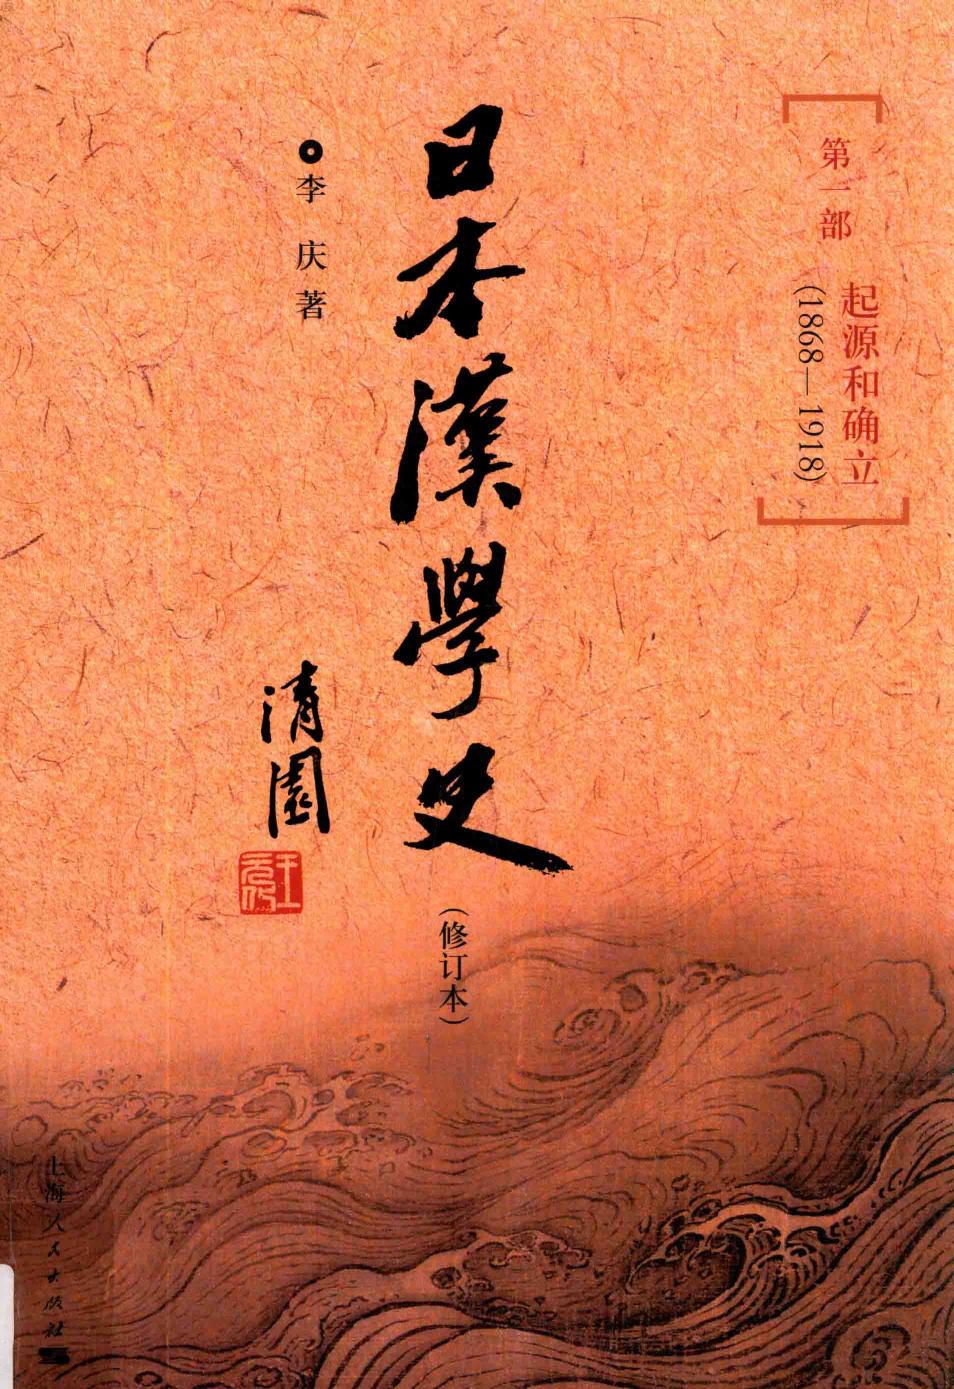 第一部
起源和确立
(1868—1918)
日本漢學史
(修订本)
李庆著
清園
王元化
上海人民出版社